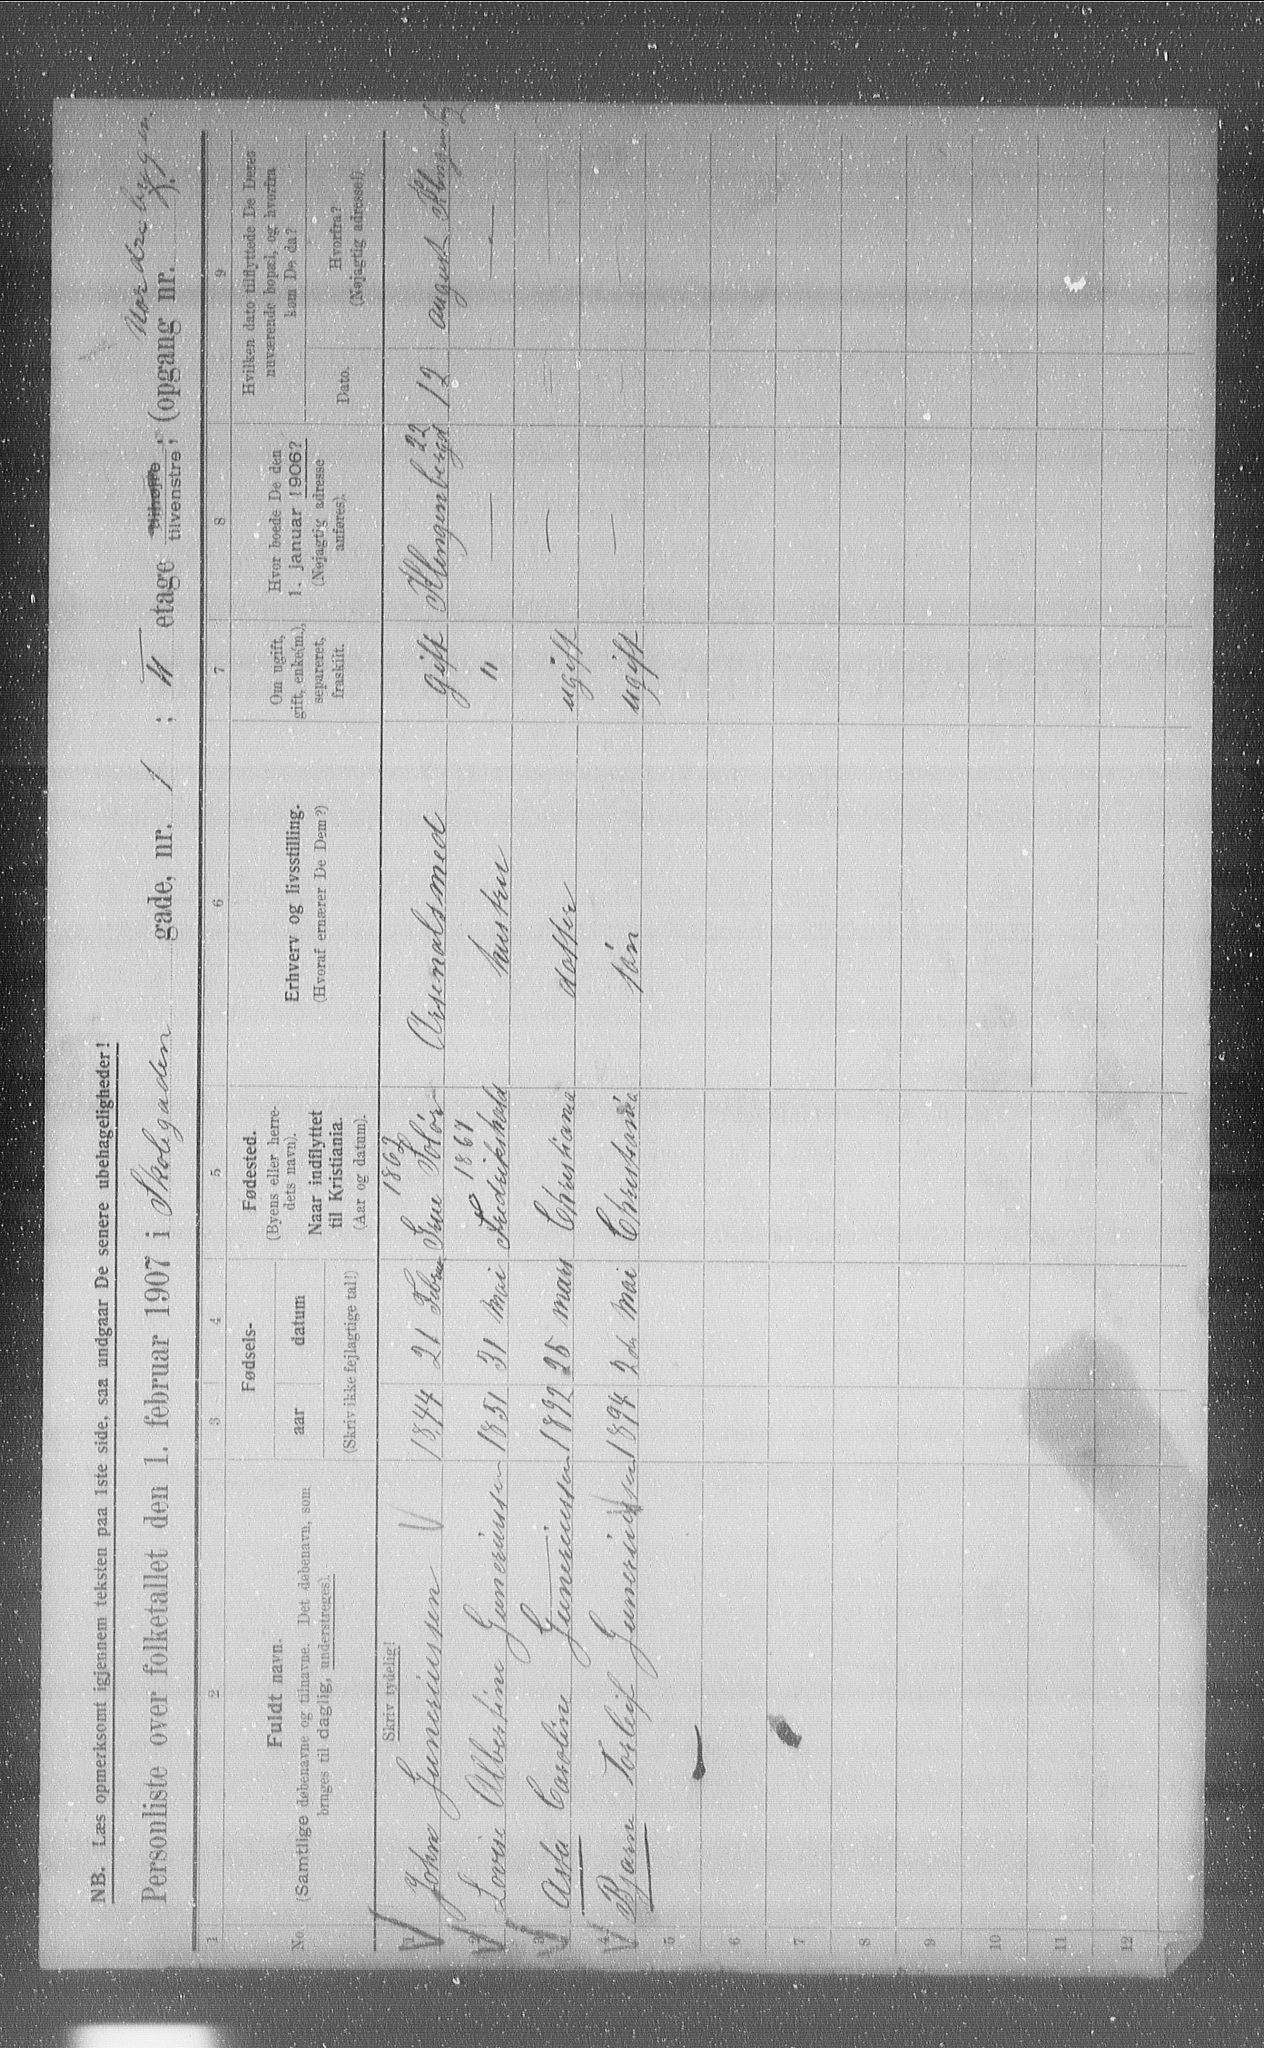 NB. Læs opmerksomt igjennem teksten paa 1ste side, saa undgaar De senere ubehageligheder!
Nordrebygn.
Personliste over folketallet den 1. februar 1907 i Skolegaden gade, nr. 1 ; II etage tilhøjre tilvenstre ; (opgang nr.
1 2 3 4 5 6 7 8 9
No.
Fuldt navn.
(Samtlige døbenavne og tilnavne. Det døbenavn, som
bruges til daglig, understreges).
Fødsels-
aar datum
(Skriv ikke fejlagtige tal!)
Fødested.
(Byens eller herre-
dets navn).
Naar indflyttet
til Kristiania.
(Aar og datum).
Erhverv og livsstilling.
(Hvoraf ernærer De Dem?)
Om ugift,
gift, enke(m.),
separeret,
fraskilt.
Hvor boede De den
1. januar 1906?
(Nøjagtig adresse
anføres).
Hvilken dato tilflyttede De Deres
nuværende bopæl, og hvorfra
kom De da?
Dato.
Hvorfra?
(Nøjagtig adresse!)
Skriv tydelig!
1 John Gunerinssen 1844 21 Febru Grue Solør Arsenalsmed gift Klingenberggd 22 12 august
2 Lovise Albertine Gunerinssen 1851 31 Mai 1867 Fredrikshald hustru " — —
3 Asta Caroline Gunerinssen 1892 25 mars Christiania datter ugift —
4 Bjarne Torleif Gunerinssen 1894 2de Mai Christiania søn ugift —
5
6
7
8
9
10
11
12